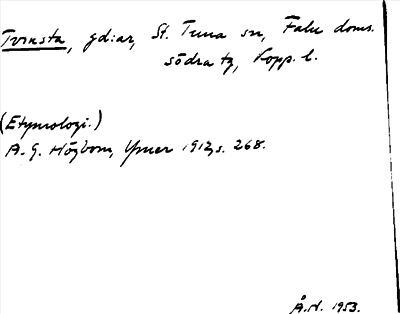 Tvinsta, gd:ar, St. Tuna sn, Falu doms.
södra tg, Kopp. l.
(Etymologi.)
A. G. Högbom, Ymer 1912, s. 268.
Å.H. 1953.